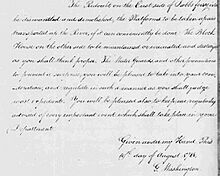 The Redoubt on the East side of
be dismantled and demolished, the Platforms to be taken up and
transported up the River, if it can conveniently be done. The Block
House on the other side to be maintained or evacuated and destroyed
as you shall think proper. The Water Guards and other precautions
to prevent a surprise, you will be pleased to take into your consi-
deration, and regulate in such a manner as you shall judge
most expedient. You will be pleased also to keep me regularly
advised of every important event which shall take place in your
Department.
Given under my Hand this
day of August
G. Washington